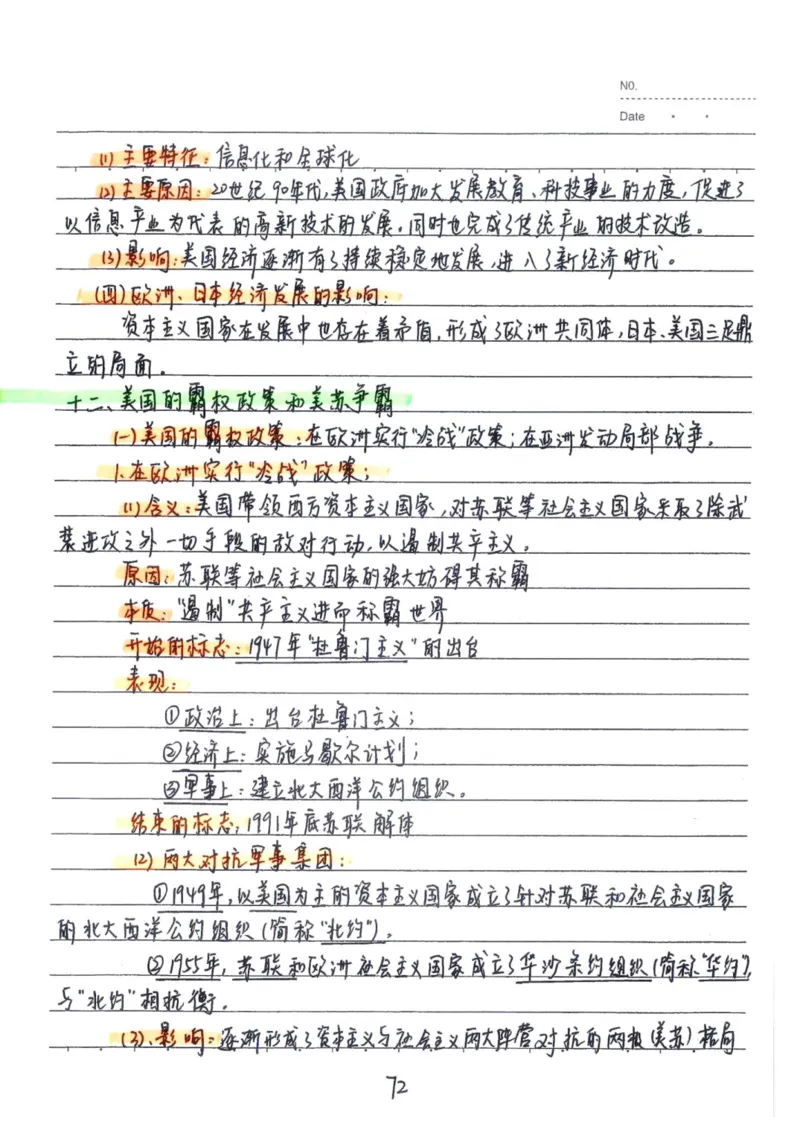 NO.
Date
(1)主要特征：信息化和全球化
(2)主要原因：20世纪90年代,美国政府加大发展教育、科技事业的力度,促进了
以信息产业为代表的高新技术的发展。同时也完成了传统产业的技术改造。
(3)影响：美国经济逐渐有了持续稳定地发展,进入了新经济时代。
(四)欧洲、日本经济发展的影响：
资本主义国家在发展中也存在着矛盾,形成了欧洲共同体,日本、美国三足鼎
立的局面。
十二、美国的霸权政策和美苏争霸
(一)美国的霸权政策：在欧洲实行“冷战”政策；在亚洲发动局部战争。
1.在欧洲实行“冷战”政策；
(1)含义：美国带领西方资本主义国家,对苏联等社会主义国家采取了除武
装进攻之外一切手段的敌对行动,以遏制共产主义。
原因：苏联等社会主义国家的强大妨碍其称霸
本质：“遏制”共产主义进而称霸世界
开始的标志：1947年“杜鲁门主义”的出台
表现：
①政治上：出台杜鲁门主义；
②经济上：实施马歇尔计划；
③军事上：建立北大西洋公约组织。
结束的标志：1991年底苏联解体
(2)两大对抗军事集团：
①1949年,以美国为主的资本主义国家成立了针对苏联和社会主义国家
的北大西洋公约组织(简称“北约”)。
②1955年,苏联和欧洲社会主义国家成立了华沙条约组织(简称“华约”),
与“北约”相抗衡。
(3)、影响：逐渐形成了资本主义与社会主义两大阵营对抗的两极(美苏)格局
72